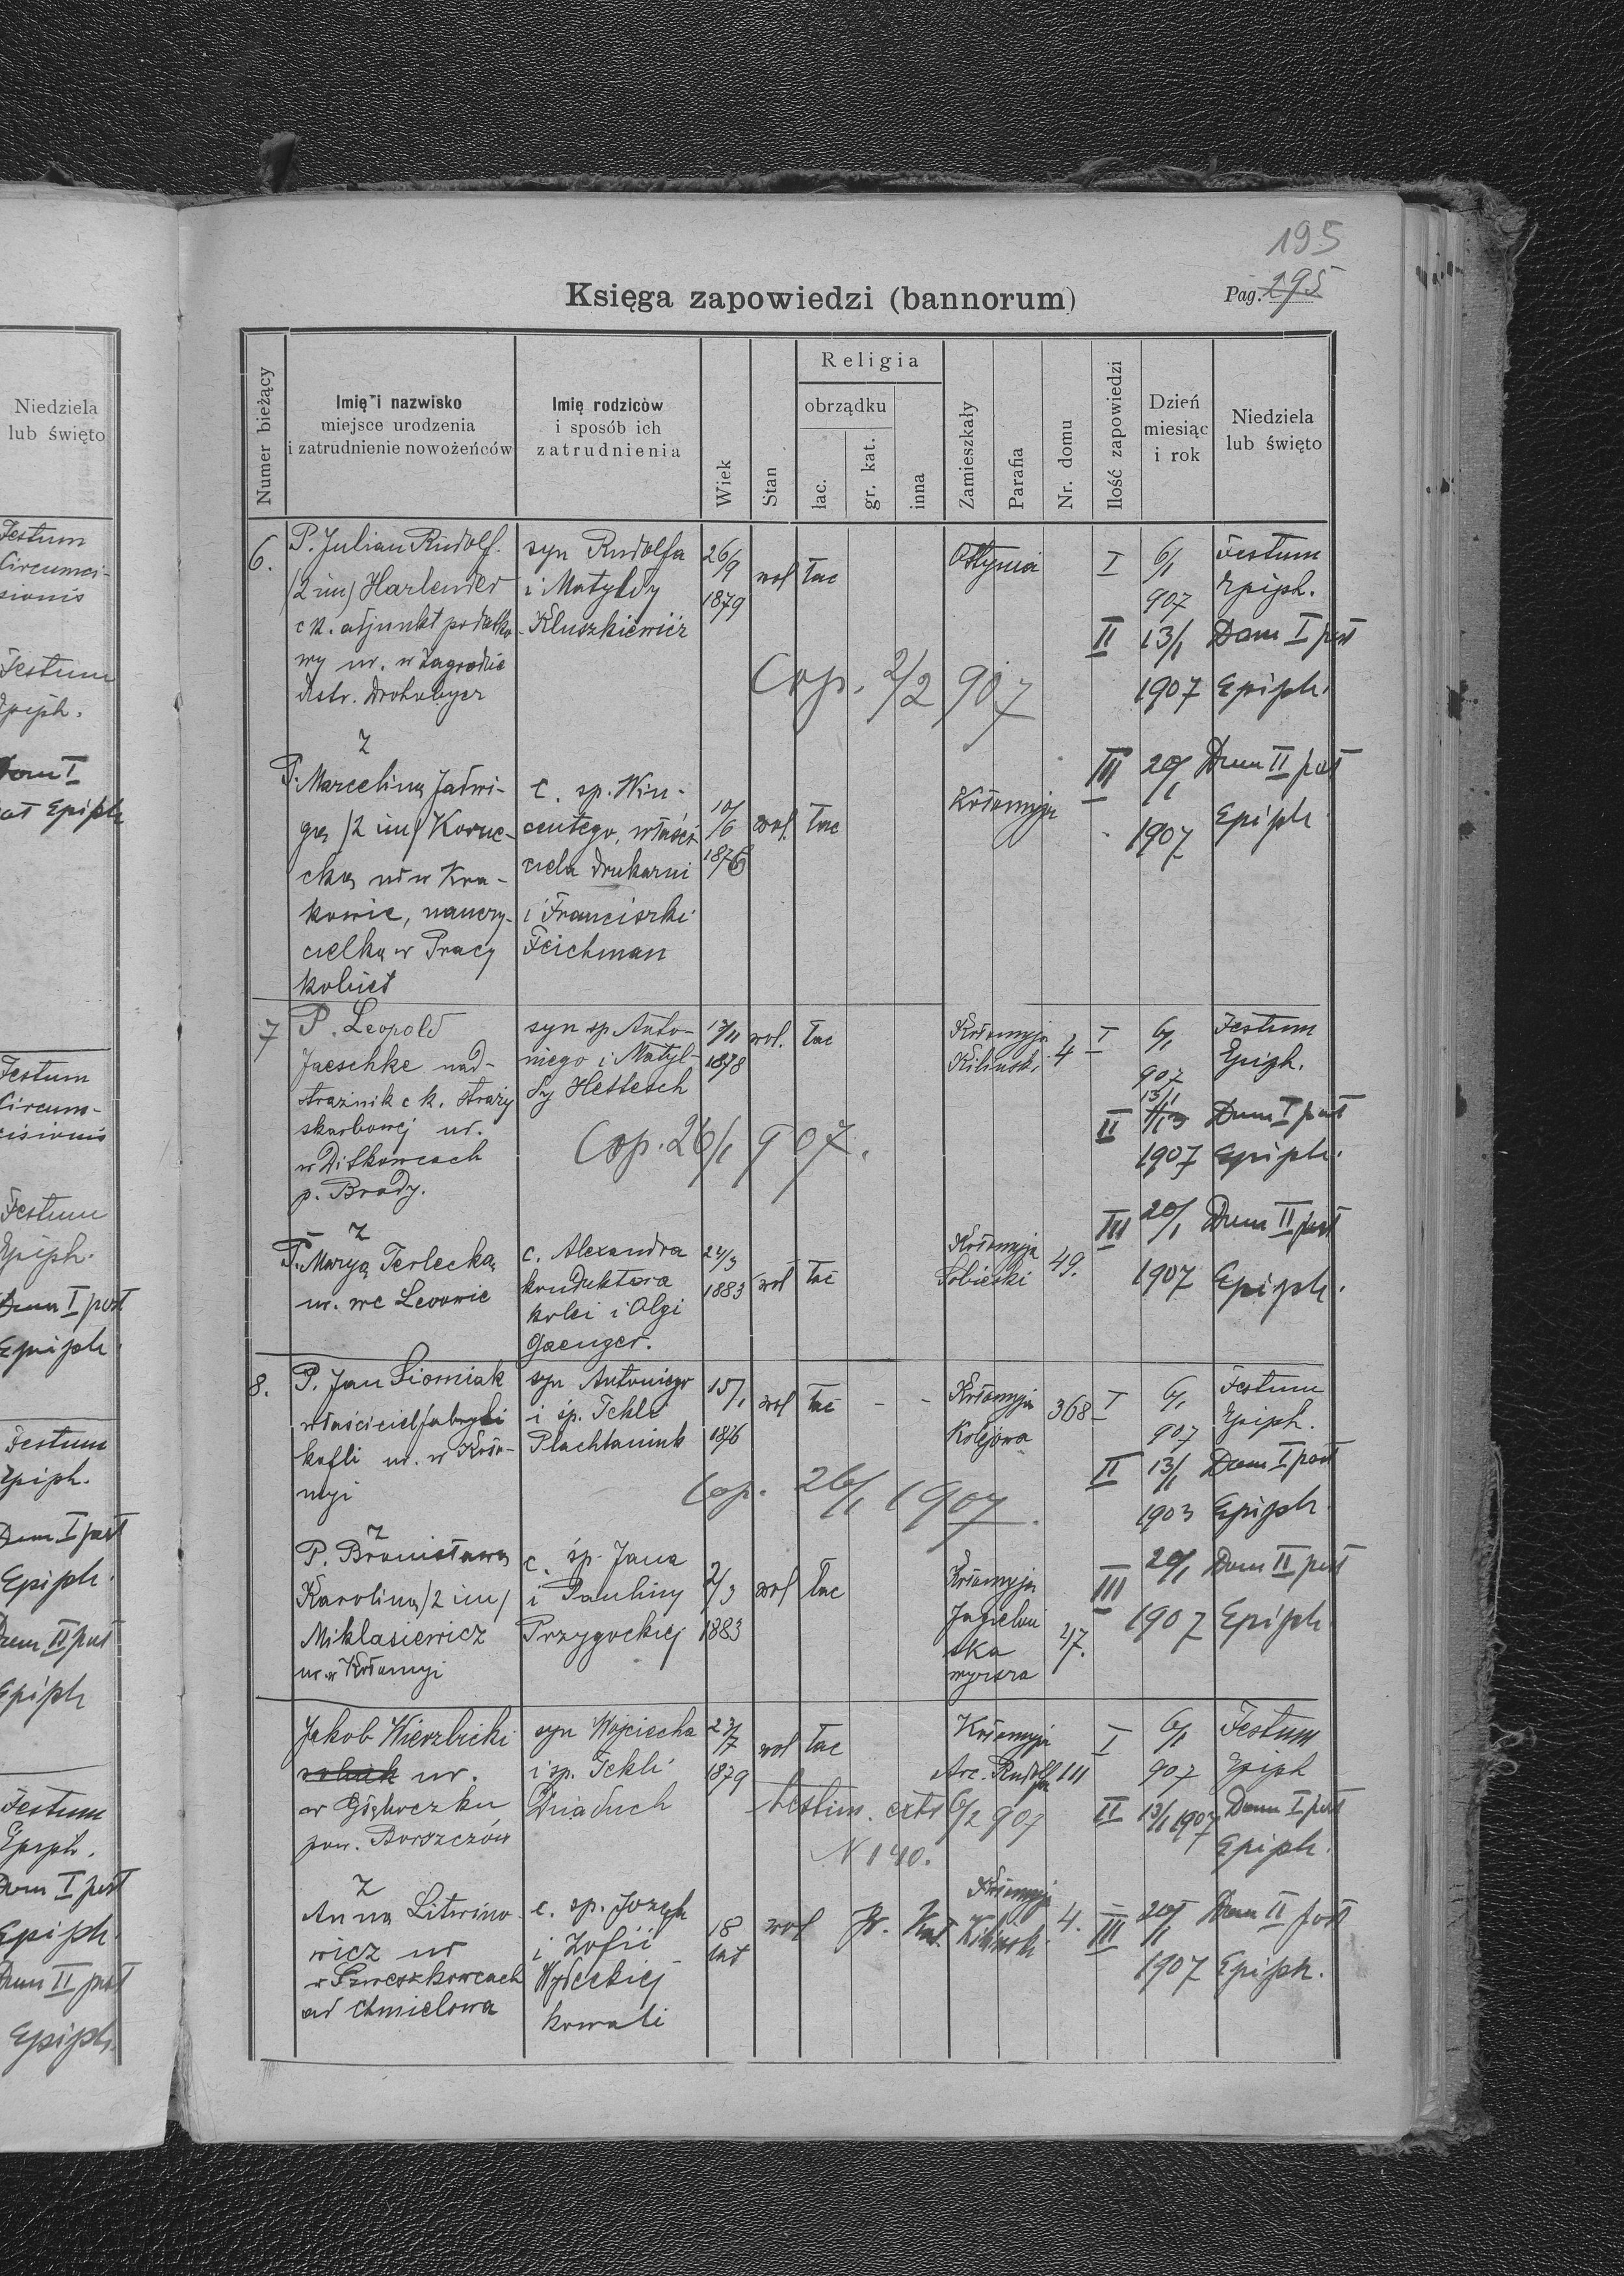 195
Księga zapowiedzi (bannorum)
Pag. 195
Numer bieżący
Imię i nazwisko
miejsce urodzenia
i zatrudnienie nowożeńców
Imię rodziców
i sposób ich
zatrudnienia
Wiek
Stan
Religia
obrządku
łac.
gr. kat.
inna
Zamieszkały
Parafia
Nr. domu
Ilość zapowiedzi
Dzień
miesiąc
i rok
Niedziela
lub święto
Niedziela
lub święto
Festum
Circumci-
sionis
Festum
Epiph.
Dom I
post Epiph
Festum
Circum-
cisionis
Festum
Epiph.
Dom I post
Epiph
Festum
Epiph.
Dom I post
Epiph.
Dom II post
Epiph
Festum
Epiph.
Dom I post
Epiph.
Dom II post
Epiph.
6.
P. Julian Rudolf
(2 im) Harlender
c k. adjunkt podatko-
wy ur. w Zagrodzie
Z
P. Marceliną Jadwi-
gą (2 im)
cką ur w Kra-
kowie, nauczy-
cielką w Pracy
kobiet
syn Rudolfa
i Matyldy
Kluszkiewicz
c. sp. Win-
centego, właści-
ciela drukarni
i Franciszki
Feichman
26/9
1879
wol łac
Ottynia
Cop. 2/2 907
10/6
1876
wol. łac
Kołomyja
I 6/1 907 Festum Epiph.
II 13/1 1907 Dom I post Epiph.
III 20/1 1907 Dom II post Epiph
7
P. Leopold
Jaeschke nad-
strażnik c k. straży
skarbowej ur.
p. Brody.
Z
P. Maryą Terlecką
ur. we Lwowie
syn sp Anto-
niego i Matyl-
dy
Cop. 26/1 907.
c. Alexandra
konduktora
kolei i Olgi
Gaenger.
1878
wol. łac
Kołomyja
Kilinski 4
1883 wol łac
Kołomyja
Sobieski 49.
I 6/1 907 Festum Epiph.
II 13/1 1907 Dom I post Epiph.
III 20/1 1907 Dom II post Epiph.
8.
P. Jan Siomiak
właściciel fabryki
kafli ur. w Koło-
myi
Z
P. Bronisławą
Karoliną (2 im)
Miklasiewicz
ur. w Kołomyi
syn Antoniego
i śp. Tekli
c. śp. Jana
i Pauliny
Przygockiej
15/1
wol łac - -
Kołomyja
Kolejowa 368
Cop. 26/1 1907.
2/3
1883
wol łac
Kołomyja
Jagieloń
ska
wyższa
47.
I 6/1 907 Festum Epiph.
II 13/1 1903 Dom I post Epiph
III 20/1 1907 Dom II post Epiph.
Jakob Wierzbicki
ur.
w Głęboczku
pow. Borszczów
Z
Anną Litwino-
wicz ur
od Chmielowa
syn Wojciecha
i sp. Tekli
c. sp. Józefa
i Zofii
kowali
1879
wol łac
Kołomyja
Arc. Rudolfa 111
testim. exts 6/2 907
N 140.
18
lat
wol gr. kat.
Kołomyja
Kilinski 4.
I 6/1 907 Festum Epiph
II 13/1 1907 Dom I post Epiph.
III 20/1 1907 Dom II post Epiph.